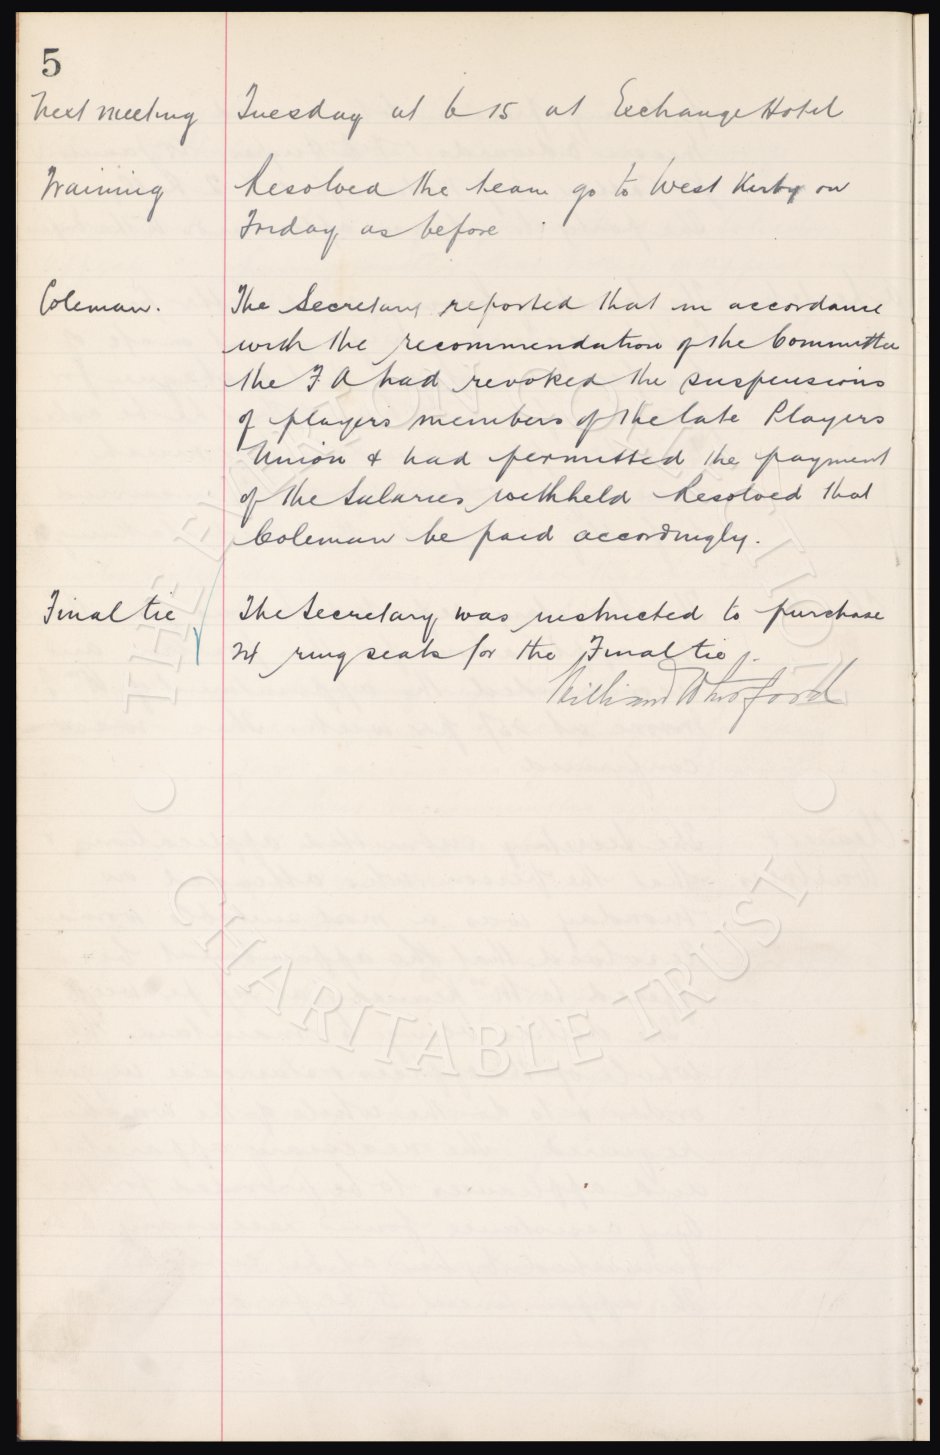 5
Next meeting Tuesday at 6 15 at Exchange Hotel
Training Resolved the team go to West Kirby on
Friday as before
Coleman. The Secretary reported that in accordance
with the recommendation of the Committee
the F A had revoked the suspensions
of players members of the late Players
Union & had permitted the payment
of the Salaries withheld Resolved that
Coleman be paid accordingly.
Final tie The Secretary was instructed to purchase
24 ring seats for the Final tie.
William Whitford
THE EVERTON COLLECTION
CHARITABLE TRUST